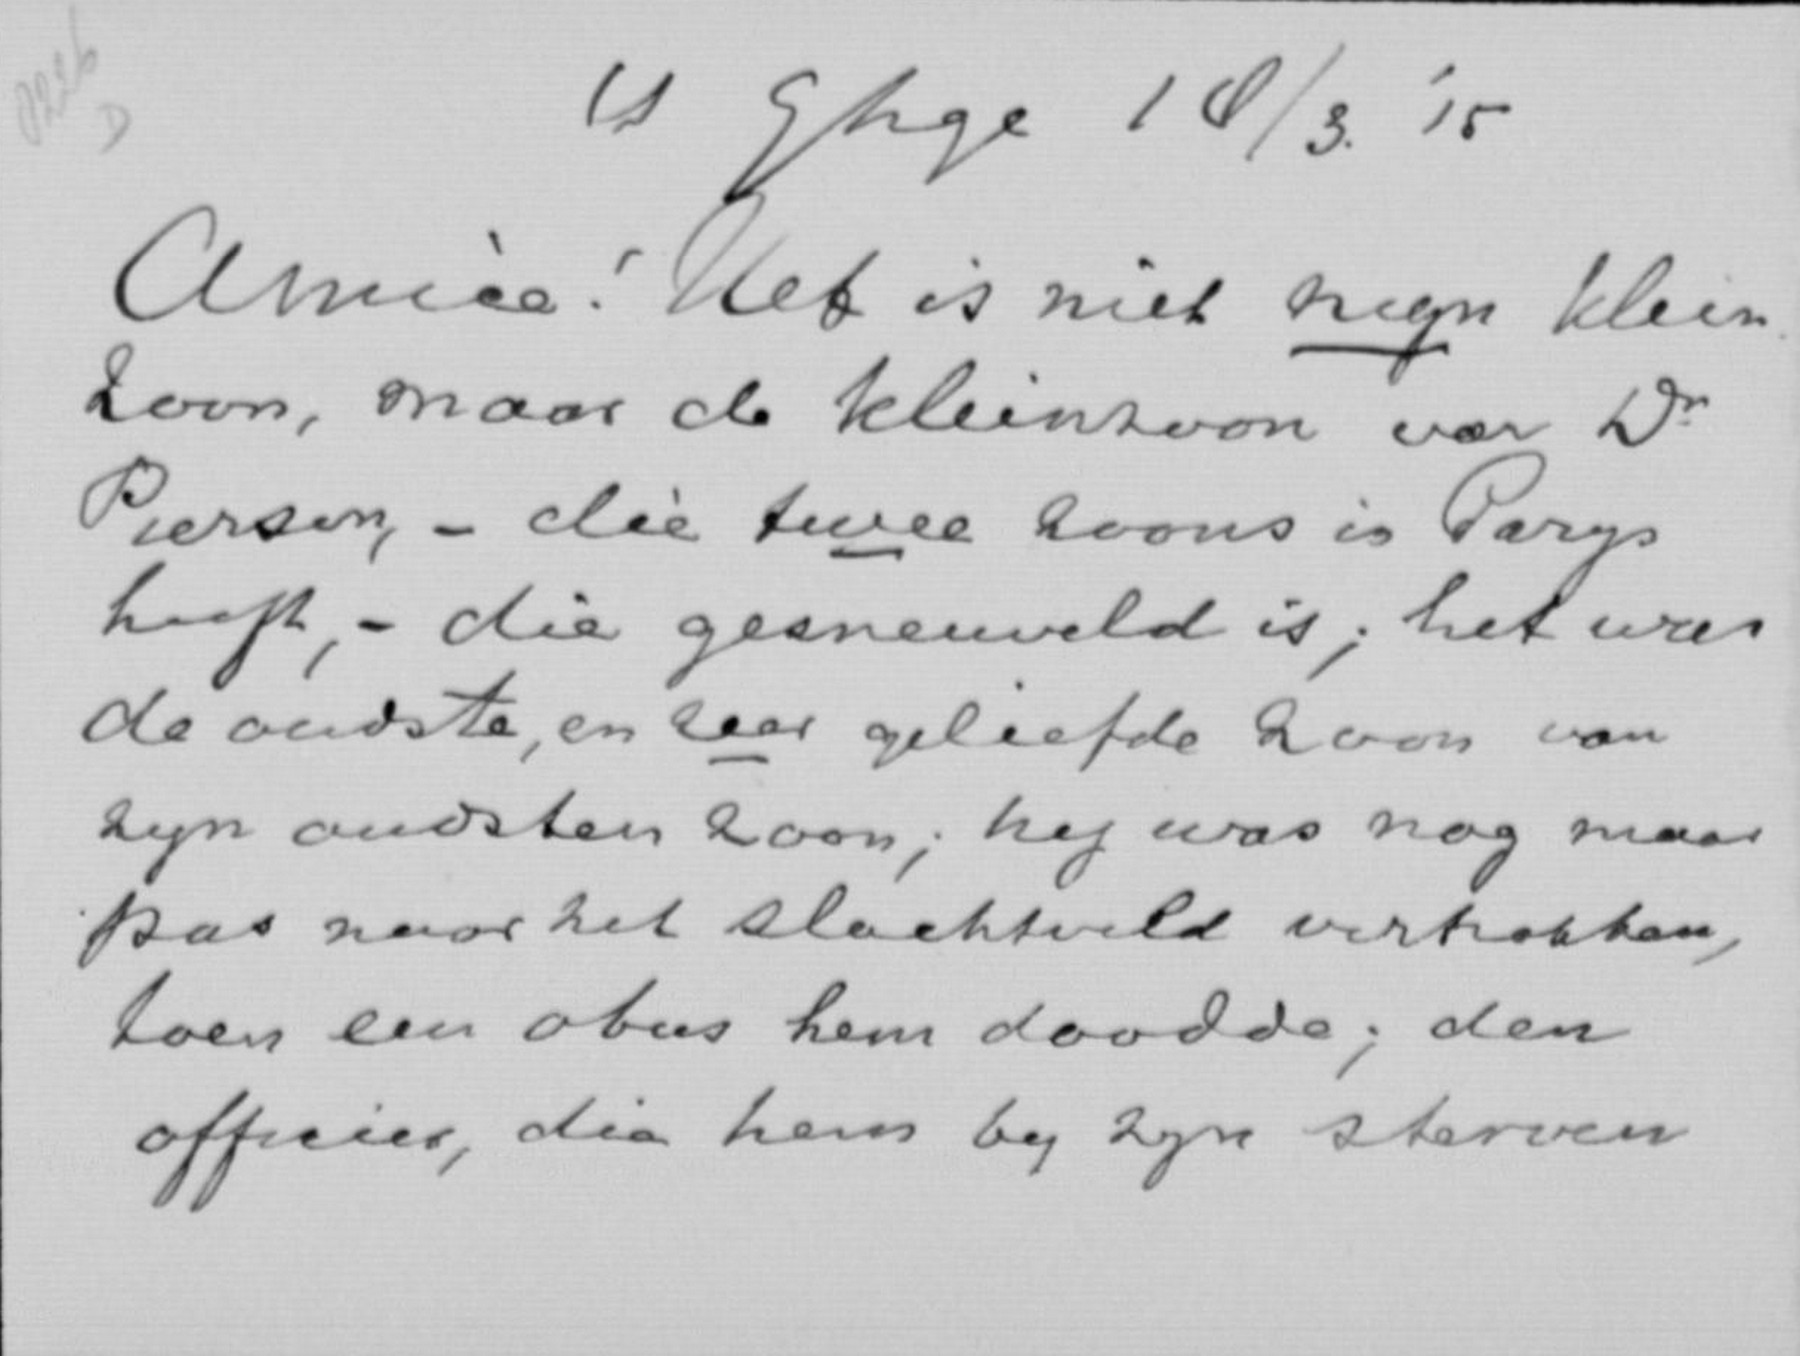 's Ghge 18/3. '15
Amice! Het is niet mijn klein
zoon, maar de kleinzoon van Dr
Pierson, - die twee zoons in Parijs
heeft, - die gesneuveld is; het was
de oudste, en zeer geliefde zoon van
zijn oudsten zoon; hij was nog maar
pas naar het slachtveld vertrokken,
toen een obus hem doodde; den
officier, die hem bij zijn sterven